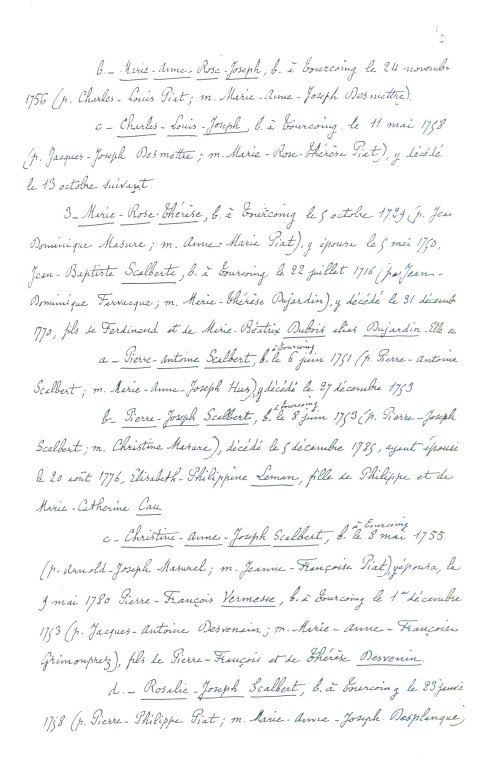 b.- Marie-Anne-Rose-Joseph, b. à Tourcoing le 24 novembre
1756 (p. Charles-Louis Piat; m. Marie-Anne-Joseph Desmettre)
c- Charles-Louis-Joseph, b. à Tourcoing le 11 mai 1758
(p. Jacques-Joseph Desmettre; m. Marie-Rose-Thérèse Piat), y décédé
le 13 octobre suivant.
3- Marie-Rose-Thérèse, b. à Tourcoing le 5 octobre 1729 (p. Jean
Dominique Masure; m. Anne-Marie Piat), y épousa le 5 mai 1750,
Jean-Baptiste Scalberte, b. à Tourcoing le 22 juillet 1716 (par Jean-
Dominique Fervacque; m. Marie-Thérèse Dujardin), y décédé le 31 décemb
1770, fils de Ferdinand et de Marie-Béatrix Dubois alias Dujardin. Elle
a- Pierre-Antoine Scalbert, b. à Tourcoing le 6 juin 1751 (p. Pierre-Antoine
Scalbert; m. Marie-Anne-Joseph Hus), y décédé le 27 décembre 1753
b- Pierre-Joseph Scalbert, b. à Tourcoing le 8 juin 1753 (p. Pierre-Joseph
Scalbert; m. Christine Masure), décédé le 5 décembre 1785, ayant épousé
le 20 août 1776, Elisabeth-Philippine Leman, fille de Philippe et de
Marie-Catherine Cau
c- Christine-Anne-Joseph Scalbert, b. à Tourcoing le 3 mai 1755
(p. Arnold-Joseph Masurel; m. Jeanne-Françoise Piat), y épousa, le
9 mai 1780 Pierre-François Vermesse, b. à Tourcoing le 1er décembre
1753 (p. Jacques-Antoine Desvenain; m. Marie-Anne-François
Grimonprez), fils de Pierre-François et de Thérèse Desvenin.
d.- Rosalie-Joseph Scalbert, b. à Tourcoing le 23 janvie
1758 (p. Pierre-Philippe Piat; m. Marie-Anne-Joseph Desplanque,